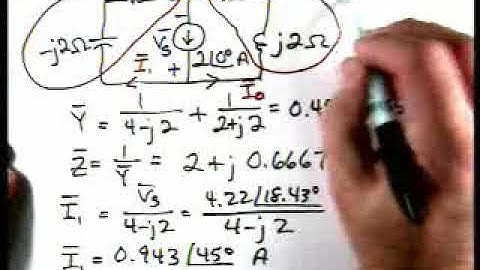 -j2Ω V̄s 2∠0° A j2Ω
Ī₁ - + Ī₀
Ȳ = 1/(4-j2) + 1/(2+j2) = 0.4
Z̄ = 1/Ȳ = 2+j 0.6667
Ī₁ = V̄s/(4-j2) = 4.22∠18.43°/(4-j2)
Ī₁ = 0.943∠45° A